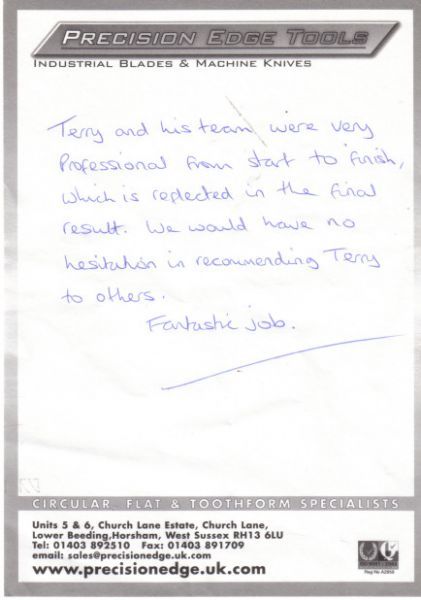 PRECISION EDGE TOOLS
INDUSTRIAL BLADES & MACHINE KNIVES
Terry and his team were very
Professional from start to finish,
which is reflected in the final
result. We would have no
hesitation in recommending Terry
to others.
Fantastic job.
CIRCULAR, FLAT & TOOTHFORM SPECIALISTS
Units 5 & 6, Church Lane Estate, Church Lane,
Lower Beeding,Horsham, West Sussex RH13 6LU
Tel: 01403 892510 Fax: 01403 891709
email: sales@precisionedge.uk.com
www.precisionedge.uk.com